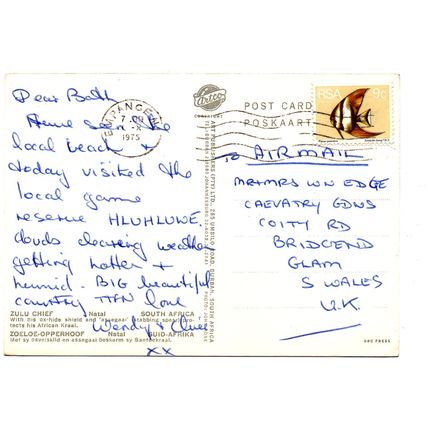 Dear Both
Have seen the
local beach +
today visited the
local game
reserve HLUHLUWE
clouds clearing weather
getting hotter +
humid. BIG beautiful
country TTFN love
Wendy + Clive
xx
ZULU CHIEF Natal SOUTH AFRICA
With his ox-hide shield and "assegai" stabbing spear pro-
tects his African Kraal.
ZOELOE-OPPERHOOF Natal SUID-AFRIKA
Met sy osvelskild en assegaai beskerm sy Bantoekraal.
EMPANGENI
7.00
-X
1975
Artco
COPYRIGHT
ART PUBLISHERS (PTY) LTD., 265 UMBILO ROAD, DURBAN, SOUTH AFRICA
POST CARD
POSKAART
RSA 9c
To AIRMAIL
MR + MRS W N EDGE
CAEVATRY GDNS
COITY RD
BRIDGEND
GLAM
S WALES
U.K.